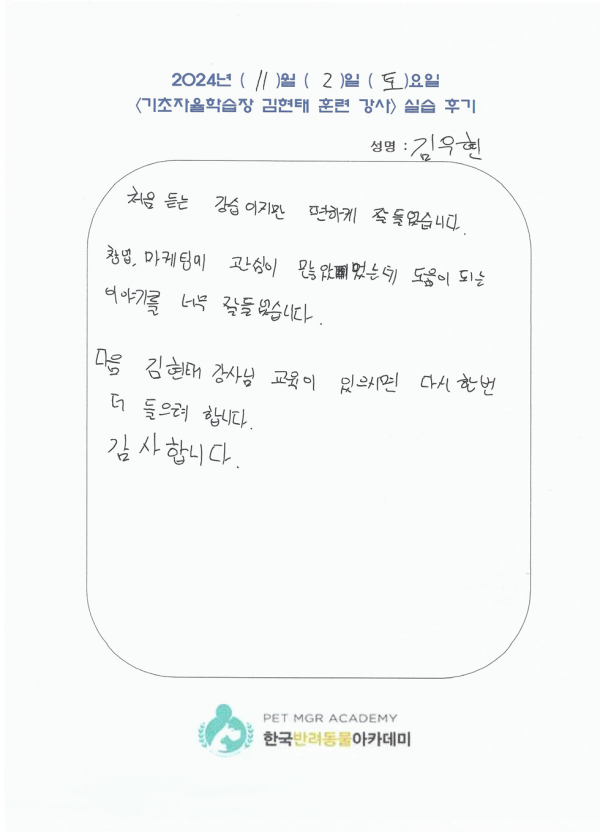 2024년 ( 11 )월 ( 2 )일 ( 토 )요일
<기초자율학습장 김현태 훈련 강사> 실습 후기
성명 : 김우현
처음 듣는 강습이지만 편하게 잘 들었습니다.
창업, 마케팅에 관심이 많았었는데 도움이 되는
이야기를 너무 잘들었습니다.
다음 김현태 강사님 교육이 있으시면 다시 한번
더 들으려 합니다.
감사합니다.
PET MGR ACADEMY
한국반려동물아카데미